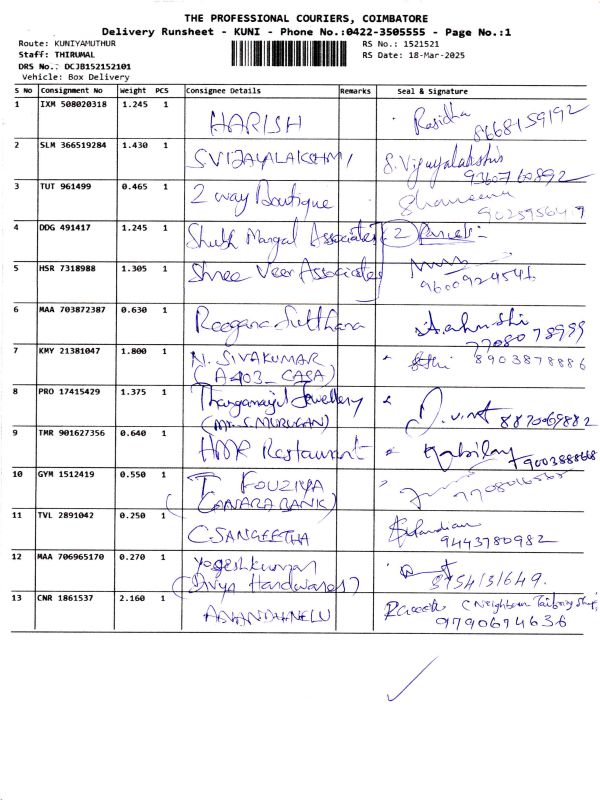 THE PROFESSIONAL COURIERS, COIMBATORE
Delivery Runsheet - KUNI - Phone No.:0422-3505555 - Page No.:1
Route: KUNIYAMUTHUR
RS No.: 1521521
Staff: THIRUMAL
RS Date: 18-Mar-2025
DRS No.: DCJB152152101
Vehicle: Box Delivery
S No Consignment No Weight PCS Consignee Details Remarks Seal & Signature
1 IXM 508020318 1.245 1
HARISH Rasidha 8668159192
2 SLM 366519284 1.430 1
S VIJAYALAKSHMI S. Vijayalakshmi
9360760892
3 TUT 961499 0.465 1
2 way Boutique
4 DDG 491417 1.245 1
Shubh Mangal Associates 2 Parcels:-
5 HSR 7318988 1.305 1
Shree Veer Associates
9600924546
6 MAA 703872387 0.630 1
Reegana Sulthana
7708078999
7 KMY 21381047 1.800 1
N. SIVAKUMAR 8903878886
(A403_CASA)
8 PRO 17415429 1.375 1
Thangamayil Jewellery
(Mr. S. MURUGAN) 8870069882
9 TMR 901627356 0.640 1
HMR Restaurant Kabilan
9003888668
10 GYM 1512419 0.550 1
T FOUZIYA
(CANARA BANK)
11 TVL 2891042 0.250 1
C SANGEETHA
9443780982
12 MAA 706965170 0.270 1
Yogeshkumar
(Divya Hardwares) 8754131649.
13 CNR 1861537 2.160 1
ANANDHNELU (Neighbour Tailoring Shop)
9790674636